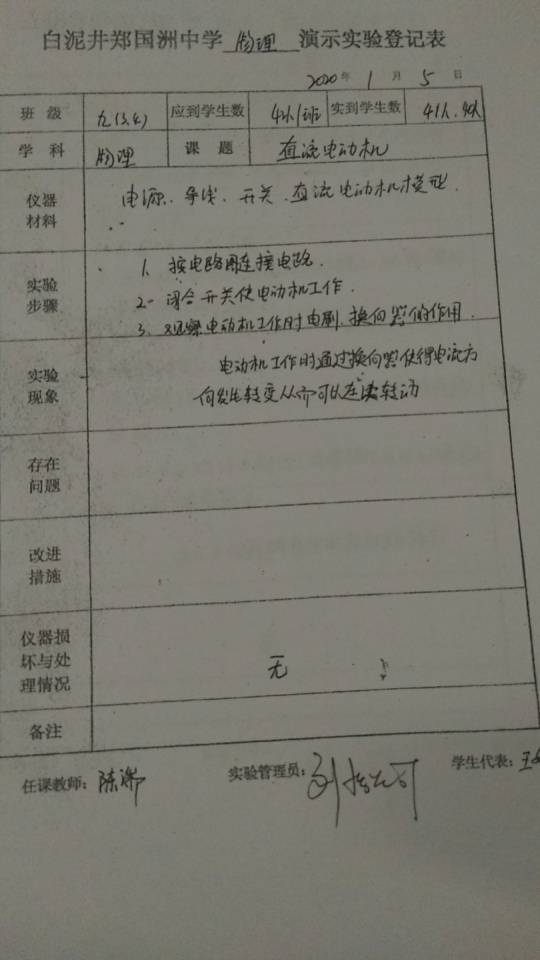 白泥井郑国洲中学 物理 演示实验登记表
2020年 1月 5日
班级 九(3.4) 应到学生数 42人/班 实到学生数 41人.42人
学科 物理 课题 直流电动机
仪器材料 电源、导线、开关、直流电动机模型.
实验步骤 1. 按电路图连接电路.
2. 闭合开关使电动机工作.
3. 观察电动机工作时电刷、换向器的作用.
实验现象 电动机工作时通过换向器使得电流方
向发生转变从而可以连续转动
存在问题
改进措施
仪器损坏与处理情况 无
备注
任课教师: 陈 实验管理员: 学生代表: 王